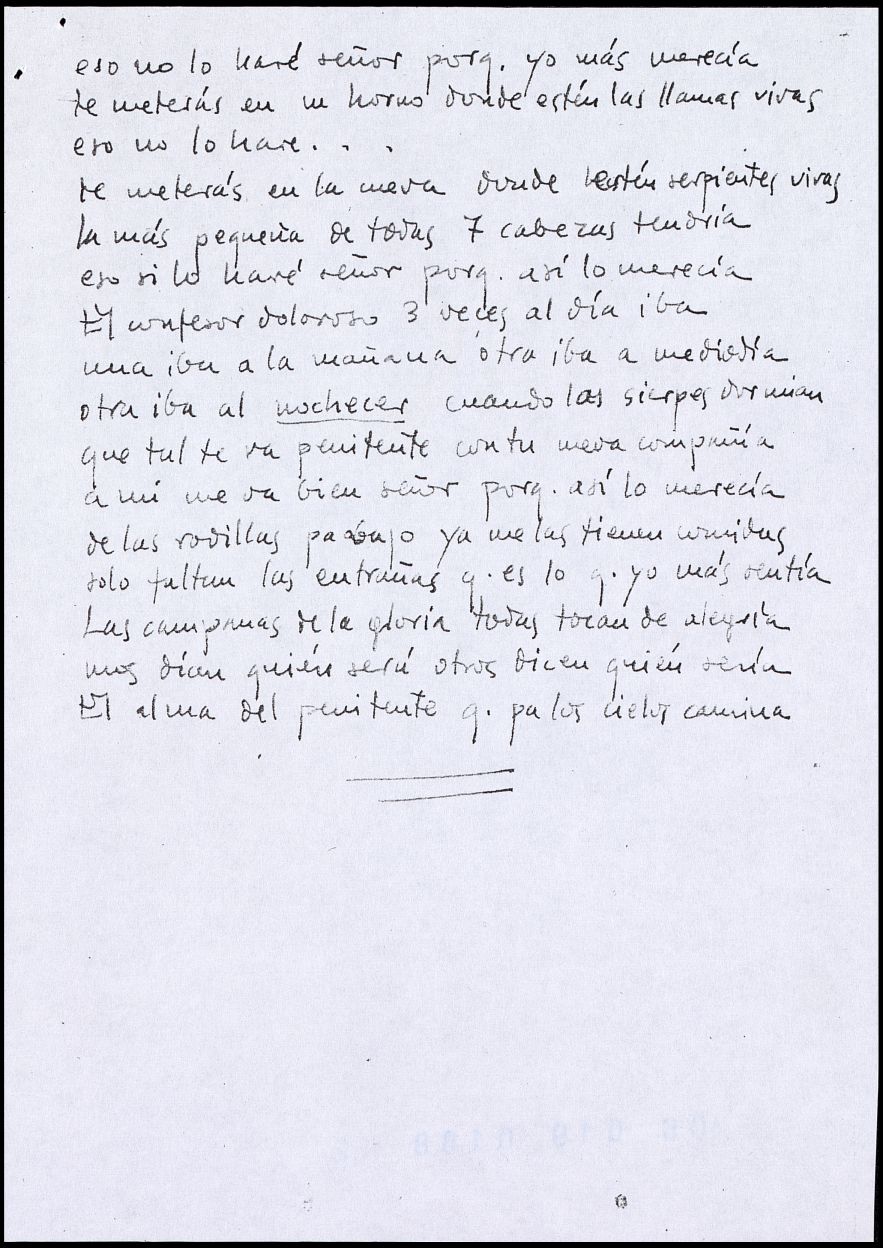 eso no lo haré señor porq. yo más merecía
te meterás en un horno donde estén las llamas vivas
eso no lo hare . . .
te meterás en la cueva donde estén serpientes vivas
la más pequeña de todas 7 cabezas tendría
eso si lo haré señor porq. así lo merecía
El confesor doloroso 3 veces al día iba
una iba a la mañana otra iba a mediodía
otra iba al nochecer cuando las sierpes dormian
que tal te va penitente con tu nueva compañía
a mi me va bien señor porq. así lo merecía
de las rodillas pa abajo ya me las tienen comidas
solo faltan las entrañas q. es lo q. yo más sentía
Las campanas de la gloria todas tocan de alegría
unos dían quién será otros dicen quién sería
El alma del penitente q. pa los cielos camina